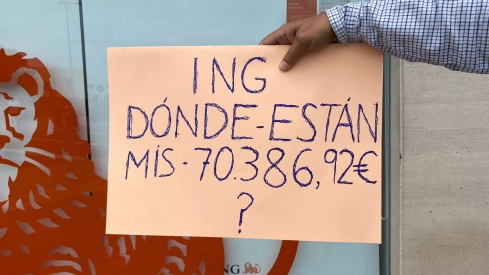 ING
DÓNDE-ESTÁN
MIS-70.386,92€
?
NG